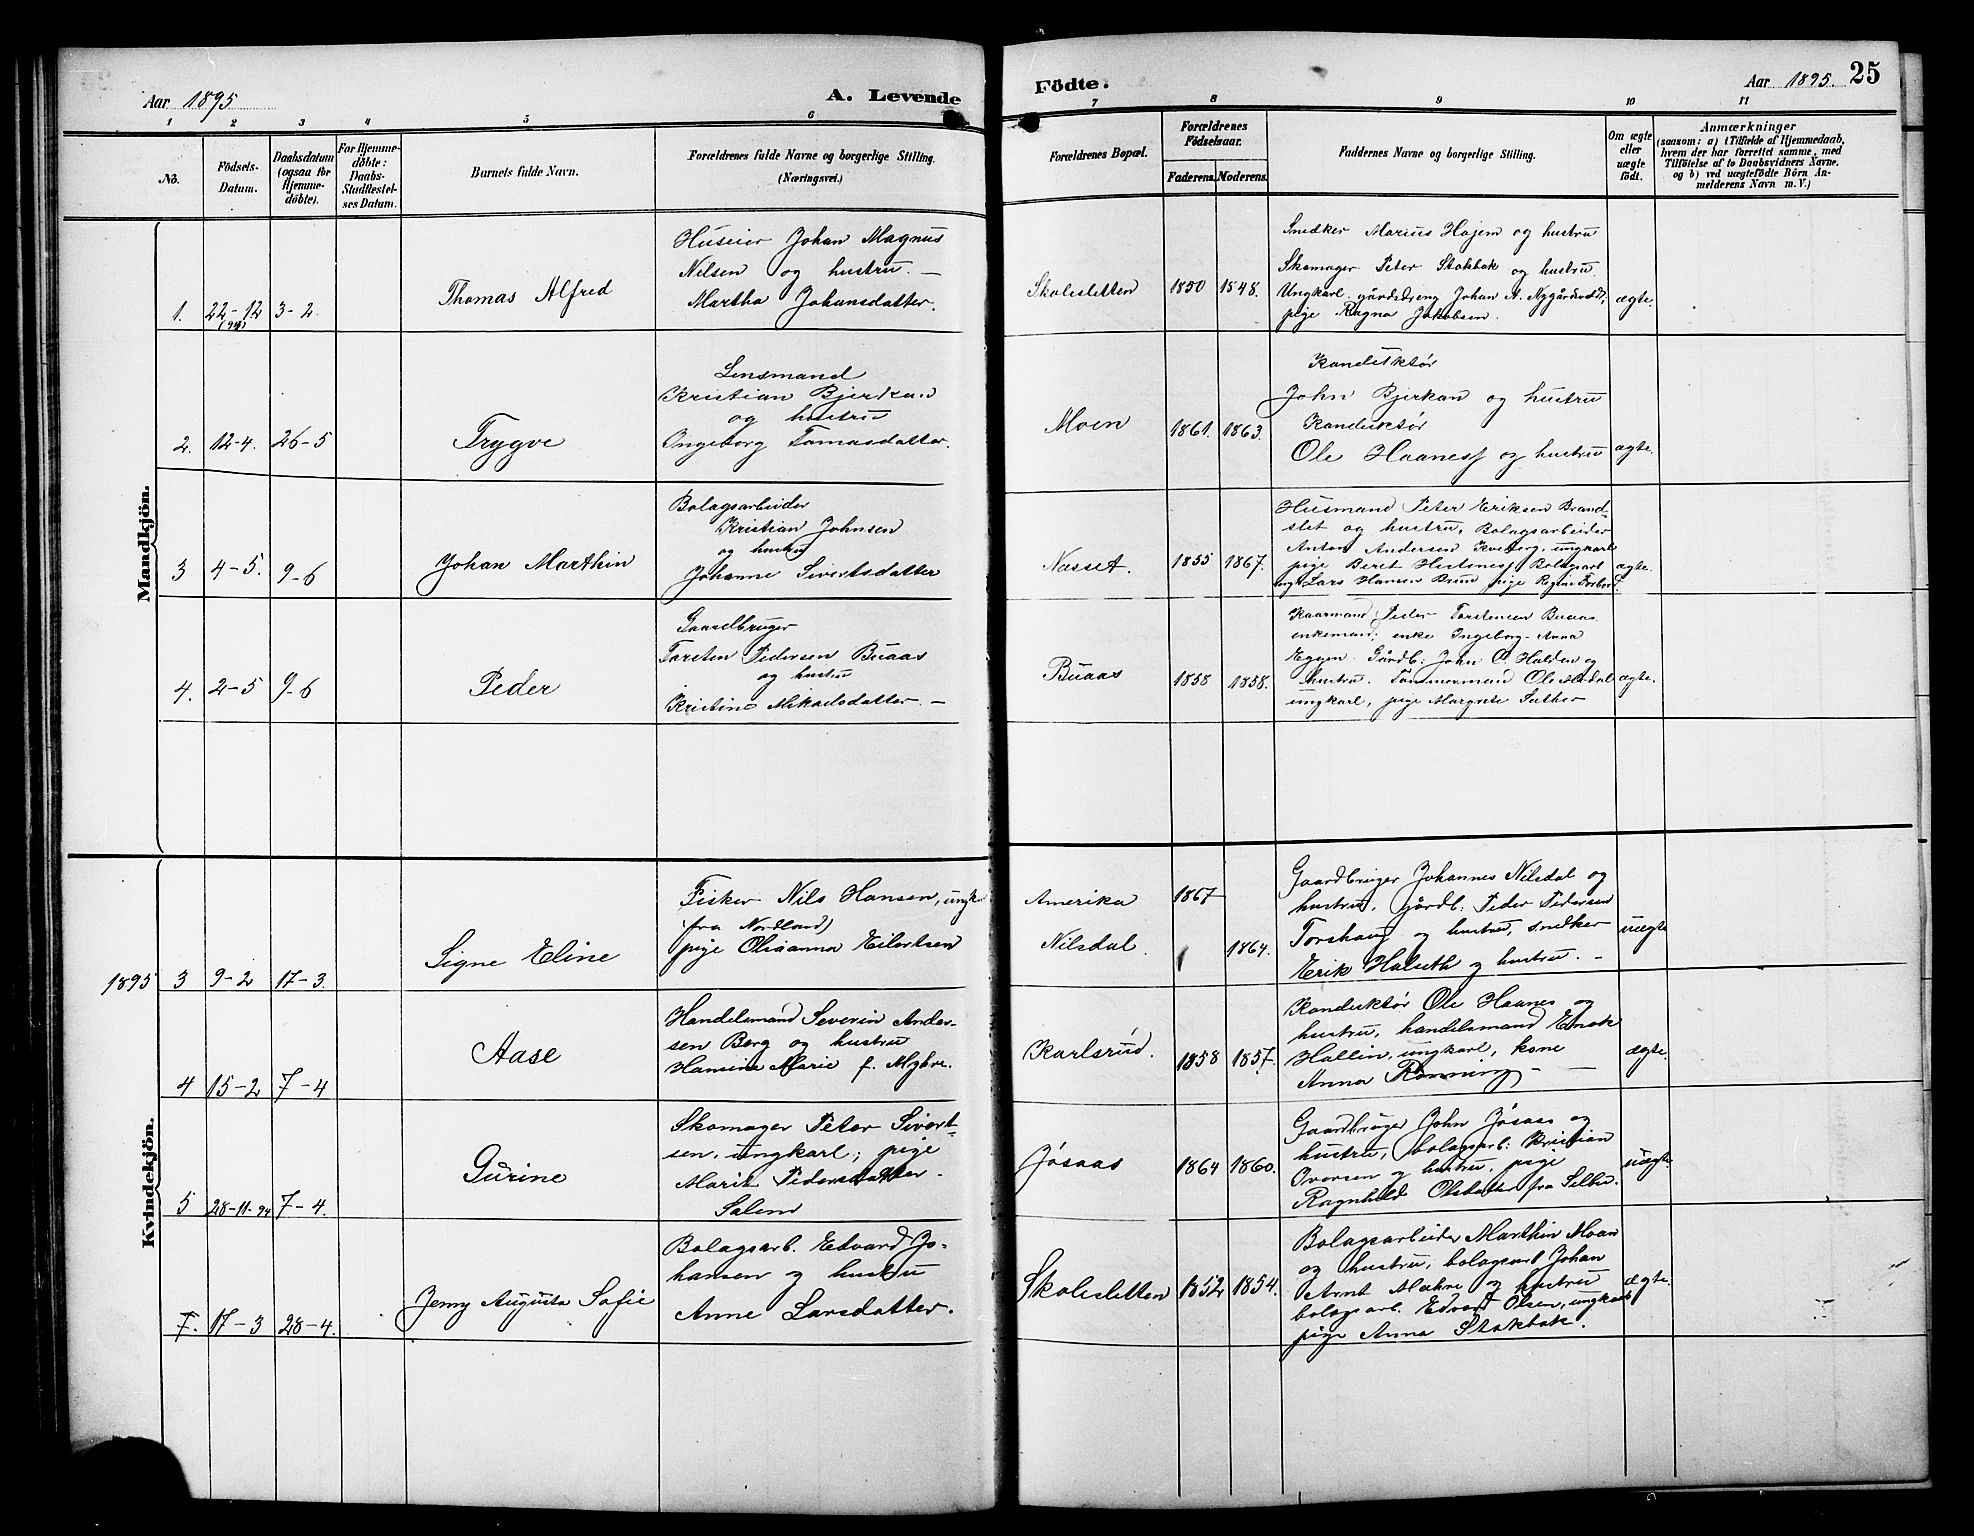 Aar 1895
A. Levende
1 2 3 4 5 6
No.
Födsels-
Datum.
Daabsdatum
(ogsaa for
Hjemme-
døbte).
For Hjemme-
døbte:
Daabs-
Stadfæstel-
ses Datum.
Barnets fulde Navn.
Forældrenes fulde Navne og borgerlige Stilling.
(Næringsvei.)
Mandkjön.
1. 22-12 (94) 3-2.
Thomas Alfred
Huseier Johan Magnus
Nilsen og hustru. —
Martha Johansdatter.
2. 12-4. 26-5
Trygve
Lensmand
Kristian Bjerkan
og hustru
Ongeborg Tomasdatter.
3 4-5. 9-6
Johan Marthin
Bolagsarbeider
Kristian Johnsen
og hustru
Johanne Sivertsdatter
4. 2-5 9-6
Peder
Gaardbruger
Torsten Pedersen Buaas
og hustru
Kristine Mikaelsdatter. —
Kvindekjön.
1895 3 9-2 17-3.
Signe Eline
Fisker Nils Hansen, ungk.
(fra Nordland)
pige Oleanna Eilertsen
4 15-2 7-4
Aase
Handelsmand Severin Ander-
sen Berg og hustru
Hansine Marie f. Myhre.
5 28-11-94 7-4.
Gurine
Skomager Peter Sivert-
sen, ungkarl; pige
Marit Pedersdatter
Salem
7. 17-3 28-4.
Jenny Augusta Sofie
Bolagsarb. Edvard Jo-
hansen og hustru
Anne Larsdatter.
Födte.
Aar 1895. 25
7 8 9 10 11
Forældrenes Bopæl.
Forældrenes
Födselsaar.
Faderens. Moderens.
Faddernes Navne og borgerlige Stilling.
Om ægte
eller
uægte
födt.
Anmærkninger
(saasom: a) i Tilfælde af Hjemmedaab,
hvem der har forrettet samme, med
Tilföielse af to Daabsvidners Navne.
og b) ved uægtefödte Börn An-
melderens Navn m. V.)
Skolesletten 1850 1848.
Snedker Marius Hojem og hustru
Skomager Peter Stokbak og hustru.
Ungkarl gårdsdreng Johan A. Nygårdsvold,
pige Ragna Jakobsen.
ægte.
Moen 1861. 1863.
Konduktør
John Bjerkan og hustru
Konduktør
Ole Haanes og hustru
ægte.
Næsset. 1855 1867.
Husmand Peter Eriksen Brand-
slet og hustru, Bolagsarbeider
Anton Andersen Kveberg, ungkarl
pige Beret Hestnes, Bolagsarb
ungk. Lars Hansen Brund pige Regine Forbord.
ægte.
Buaas 1858 1858.
Kaarmand Peder Torstensen Buaas
enkemand; enke Ingeborg-Anna
Eggen. Gårdb: John O. Halden og
hustru. Tømmermand Ole
ungkarl, pige Margrete Sæther
ægte.
Amerika 1867
Nilsdal. 1864.
Gaardbruger Johannes Nilsdal og
hustru, gårdb. Peder Pedersen
Torshaug og hustru, snedker
Erik Halseth og hustru. -
uægte
Karlsrud. 1858 1857.
Konduktør Ole Haanes og
hustru, handelsmand Enok
Hallin, ungkarl, kone
Anna Rønning —
ægte.
Jøsaas 1864 1860.
Gaardbruger John Jøsaas og
hustru, bolagsarb: Kristian
Oversen og hustru, pige
Ragnhild Olsdatter fra Selbu.
uægte.
Skolesletten 1852 1854.
Bolagsarbeider Marthin Moan
og hustru, bolagsarb Johan
Arnt Mæhre og hustru
bolagsarb. Edvard Olsen, ungkarl
pige Anna Stokbak.
ægte.